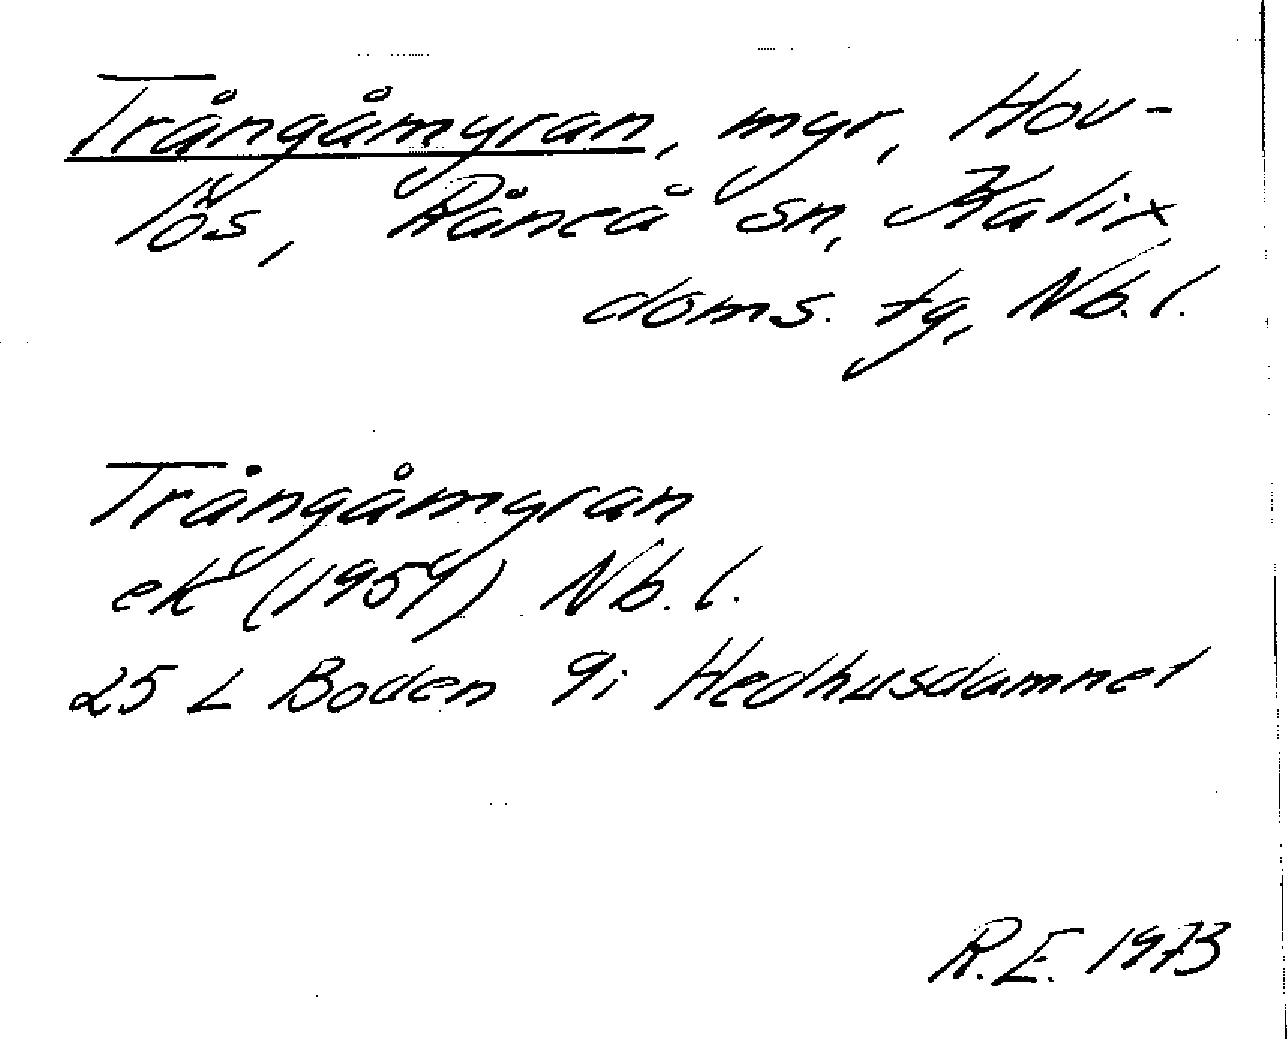 Trångåmyran, myr, Hov-
lös, Råneå sn, Kalix
doms. tg, Nb. l.
Trångåmyran
ek (1959) Nb. l.
25 L Boden 9i Hedhusdamnet
R.E. 1973